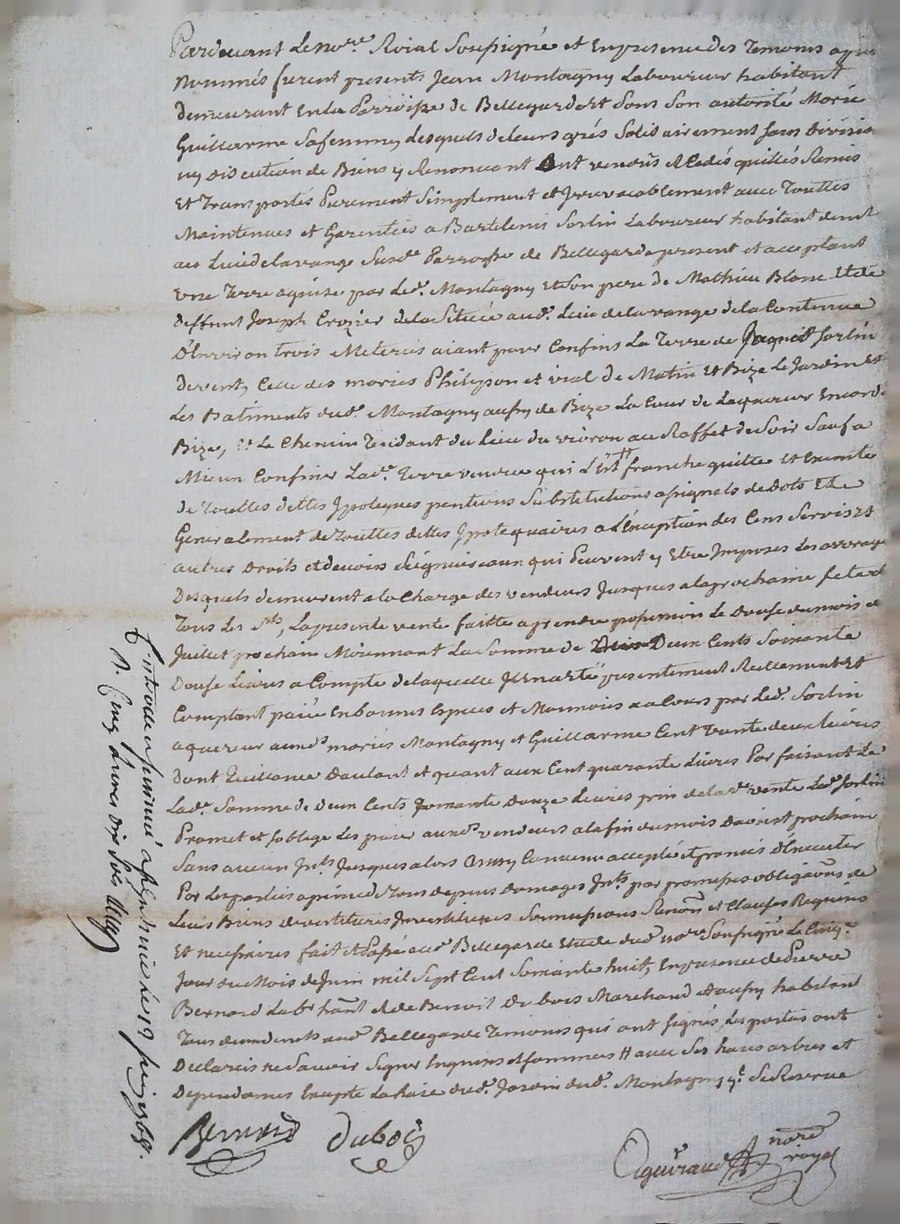 Pardevant Le nore Roial Soussigné et Enpresence des Temoins apres
Nommés furent presents Jean Montagny Laboureur habitant
demeurant Enla Parroisse de Bellegarde et Sous Son autorité Marie
Guillarme Safemme, Lesquels deleurs grés Solidairement sans Division
ny Discution de Biens y Renoncant Ont vendus et Cedés quittés Remis
Et Transportés Purement Simplement et Irrevocablement avec Touttes
Maintenues et Garenties a Bartelemi Sorlin Laboureur habitant demt
au Lieu delavange Susde Parroisse de Bellegarde present et acceptant
une Terre aquise par Led. Montagny et Son pere de Mathieu Blanc Et de
deffunt Joseph Crozier de la Situéé aud. Lieu de la vange de la Contenue
D'Environ trois Meterés aiant pour Confins La Terre de Jaques Sorlin
de vent, Celle des mariés Philipson et vial de Matin Et Bize Le Jardin Et
Les Batiments dud. Montagny aussy de Bize La Cour de Laquereur Encore de
Bize, Et Le Chemin Tendant du Lieu du vioron au Raffet de Soir Sauf a
Mieux Confiner Lade. Terre vendue qui Est franche quitte et Exemte
de Touttes dettes Ipoteques pentions Substitutions asignets de Dots Et
Generalement de Touttes dettes Ipotequaires a L'Exception des Cens Servis Et
autres Droits et devoirs Seigneuriaux qui Peuvent y Etre Imposes Les arrerages
Desquels demeurent a la Charge des vendeurs Jusques a la prochaine fete de
Tous Les Sts, La presente vente faitte a prendre possession Le Douse du mois de
Juillet prochain Moiennant La Somme de Deux Cents Soixante
Douse Livres a Compte de laquelle Il en a Eté presentement Reellement Et
Comptant paié Enbonnes Especes et Monnois au Cours par Led. Sorlin
aquereur auxds mariés Montagny et Guillarme Cent Trente deux Livres
dont Quittance D'autant et quant aux Cent quarante Livres Par faisant La
Lade. Somme de deux Cents Soixante douze Livres prix de lade vente Led. Sorlin
Promet et soblige Les paier auxds vendeurs a la fin du mois D'aoust prochain
Sans aucun Ints. Jusques alors Ainsy Convenu accepté et promis D'Executer
Par Les parties a peine de Tous depens domages Ints par promesses obligaons de
Leurs Biens Soumissions Renons et Clauses Requises
Et necessaires fait et Passé aud. Bellegarde Etude dud. nore Soussigné Le Cinqe
Jour du Mois de Juin mil Sept Cent Soixante huit, En presence de Pierre
Bernard Labr hant et de Benoit Dubois Marchand D'aussy habitant
Tous deux aud. Bellegarde Temoins qui ont Signés, Les parties ont
Declarés ne Savoir Signer Enquises et sommées # avec Ses haies arbres et
Dependances Excepté La haie dud. Jardin dud. Montagny qt. Se Reserve
Bernard Dubois
Aguiraud nore royal
le 19 juin 1768.
R. Cinq livres dix sols